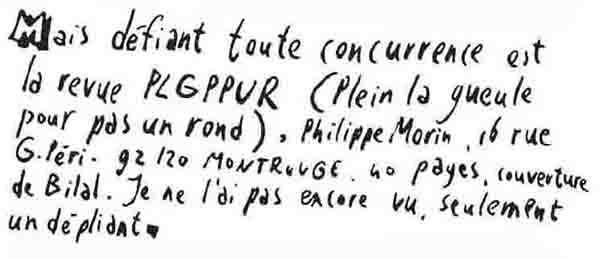 Mais défiant toute concurrence est
la revue PLGPPUR (Plein la gueule
pour pas un rond), Philippe Morin, 16 rue
G. Péri. 92120 MONTROUGE. 40 pages, couverture
de Bilal. Je ne l'ai pas encore vu, seulement
un dépliant.